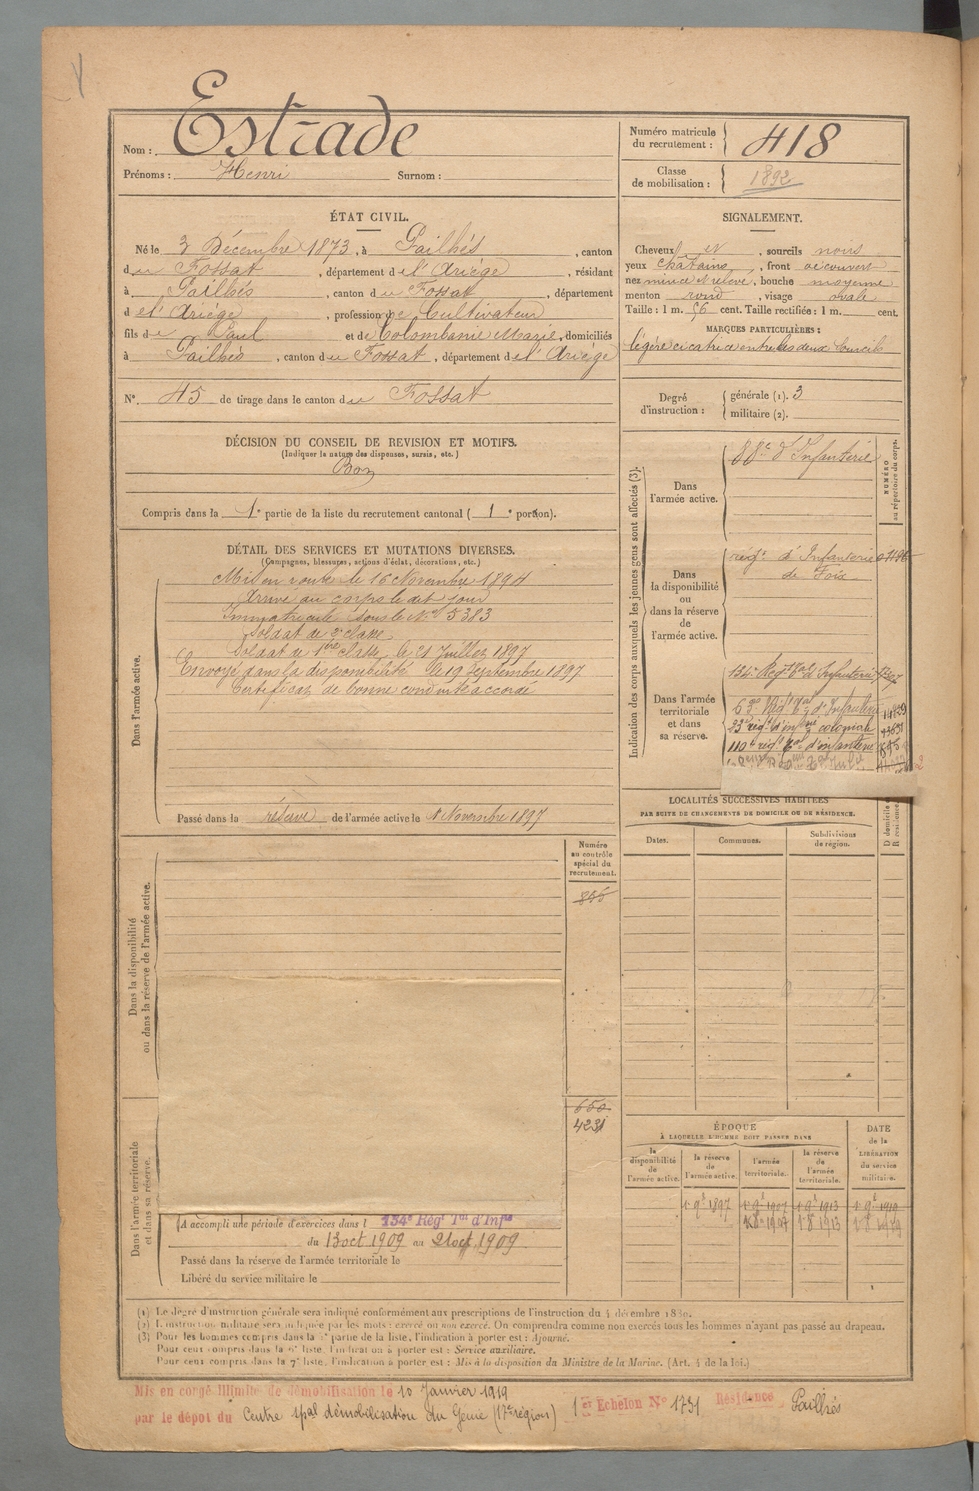 Nom : Estrade
Prénoms : Henri Surnom :
Numéro matricule du recrutement : 418
Classe de mobilisation : 1892
ÉTAT CIVIL.
Né le 3 Décembre 1873, à Pailhés, canton
du Fossat, département de l'Ariége, résidant
à Pailhés, canton du Fossat, département
de l'Ariége, profession de Cultivateur
fils de Paul et de Colombanie Marie, domiciliés
à Pailhés, canton du Fossat, département de l'Ariége
N°. 45 de tirage dans le canton du Fossat
SIGNALEMENT.
Cheveux et, sourcils noirs
yeux châtains, front découvert
nez mince et relevé, bouche moyenne
menton rond, visage ovale
Taille : 1 m. 56 cent. Taille rectifiée : 1 m. cent.
MARQUES PARTICULIÈRES :
légère cicatrice entre les deux sourcils
Degré d'instruction : générale (1). 3
militaire (2).
DÉCISION DU CONSEIL DE REVISION ET MOTIFS.
(Indiquer la nature des dispenses, sursis, etc.)
Bon
Compris dans la 1e partie de la liste du recrutement cantonal ( 1 e portion).
DÉTAIL DES SERVICES ET MUTATIONS DIVERSES.
(Campagnes, blessures, actions d'éclat, décorations, etc.)
Dans l'armée active.
Mis en route le 16 Novembre 1894
Arrivé au corps le dit jour
Immatriculé sous le N° 5383
Soldat de 2e classe
Soldat de 1ère classe le 21 Juillet 1897
Envoyé dans la disponibilité le 19 Septembre 1897
Certificat de bonne conduite accordé
Passé dans la réserve de l'armée active le 1 Novembre 1897
Indication des corps auxquels les jeunes gens sont affectés (3).
NUMÉRO au répertoire du corps.
Dans l'armée active.
88e d'Infanterie
Dans la disponibilité ou dans la réserve de l'armée active.
régt d'Infanterie
de Foix
Dans l'armée territoriale et dans sa réserve.
134e Régt tal d'Infanterie
53me Régt Tal d'Infanterie
23e régt d'inftrie coloniale
110e régt tal d'infanterie
LOCALITÉS SUCCESSIVES HABITÉES
PAR SUITE DE CHANGEMENTS DE DOMICILE OU DE RÉSIDENCE.
Dates.
Communes.
Subdivisions de région.
Numéro au contrôle spécial du recrutement.
Dans la disponibilité ou dans la réserve de l'armée active.
650
4231
Dans l'armée territoriale et dans sa réserve.
ÉPOQUE
À LAQUELLE L'HOMME DOIT PASSER DANS
la disponibilité de l'armée active.
la réserve de l'armée active.
l'armée territoriale.
la réserve de l'armée territoriale.
DATE de la LIBÉRATION du service militaire.
A accompli une période d'exercices dans l 134e Régt Tal d'Infie
du 13 oct 1909 au 21 oct 1909
Passé dans la réserve de l'armée territoriale le
Libéré du service militaire le
(1) Le degré d'instruction générale sera indiqué conformément aux prescriptions de l'instruction du 4 décembre 1889.
(2) L'instruction militaire sera indiquée par les mots : exercé ou non exercé. On comprendra comme non exercés tous les hommes n'ayant pas passé au drapeau.
(3) Pour les hommes compris dans la partie de la liste, l'indication à porter est : Ajourné.
Pour ceux compris dans la 6e liste, l'indication à porter est : Service auxiliaire.
Pour ceux compris dans la 7e liste, l'indication à porter est : Mis à la disposition du Ministre de la Marine. (Art. 4 de la loi.)
Mis en congé illimité de démobilisation le 10 Janvier 1919
par le dépot du Centre spal démobilisation du Génie (17e région) 1er Echelon N° 1731 Résidence Pailhés